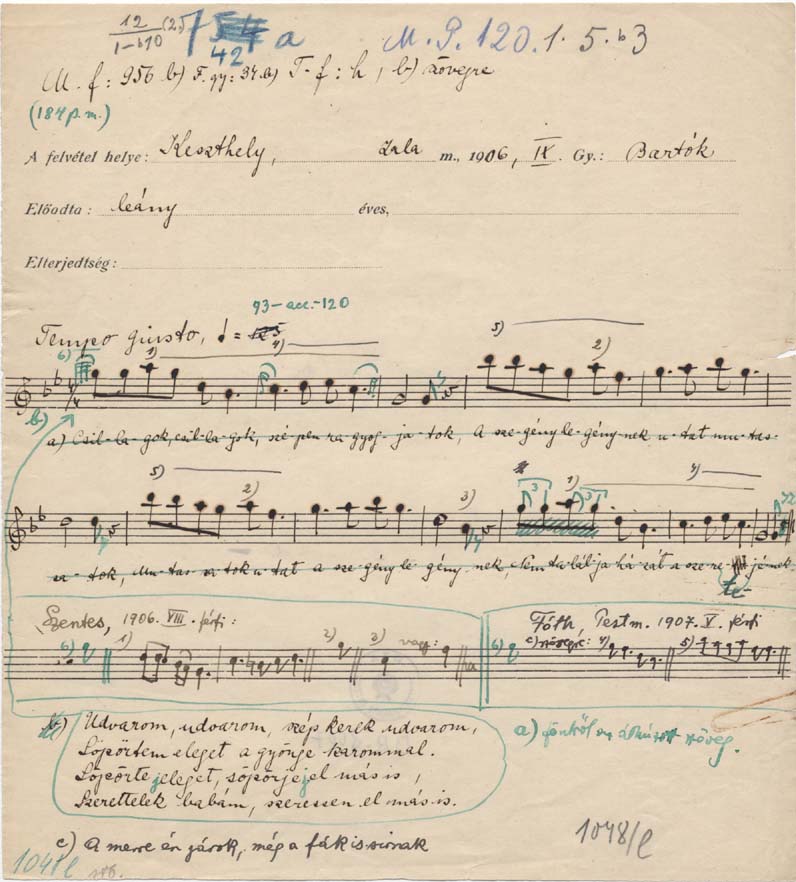 12
1-b10 (2.)
754 a
42
M. P. 120. 1. 5. b 3
M. f: 956 b) F. gy: 37. a) T. f: h, b) szövegre
(184 p.m.)
A felvétel helye: Keszthely, Zala m., 1906, IX. Gy.: Bartók
Előadta: leány éves,
Elterjedtség:
93-acc.-120
Tempo giusto,
6) 1) 4) 5) 2)
b)
a) Csil-la-gok, csil-la-gok, szé-pen ra-gyog-ja-tok, A sze-gény le-gény-nek u-tat mu-tas-
5) 2) 3) 1) 4)
3 3
sa-tok, Mu-tas-sa-tok u-tat a sze-gény le-gény-nek, Nem ta-lál-ja há-zát a sze-re- jé-nek.
te-
Szentes, 1906. VIII. férfi:
6) 1) 2) 3) vagy:
Fóth, Pestm. 1907. V. férfi
c) szövegre: 4) 5)
6)
b) Udvarom, udvarom, szép kerek udvarom,
Söpörtem eleget a gyönge karommal.
Söpörte eleget, söpörje el más is,
Szerettelek babám, szeressen el más is.
a) föntről az áthúzott szöveg.
c) A merre én járok, még a fák is sirnak
1048/e
104/e